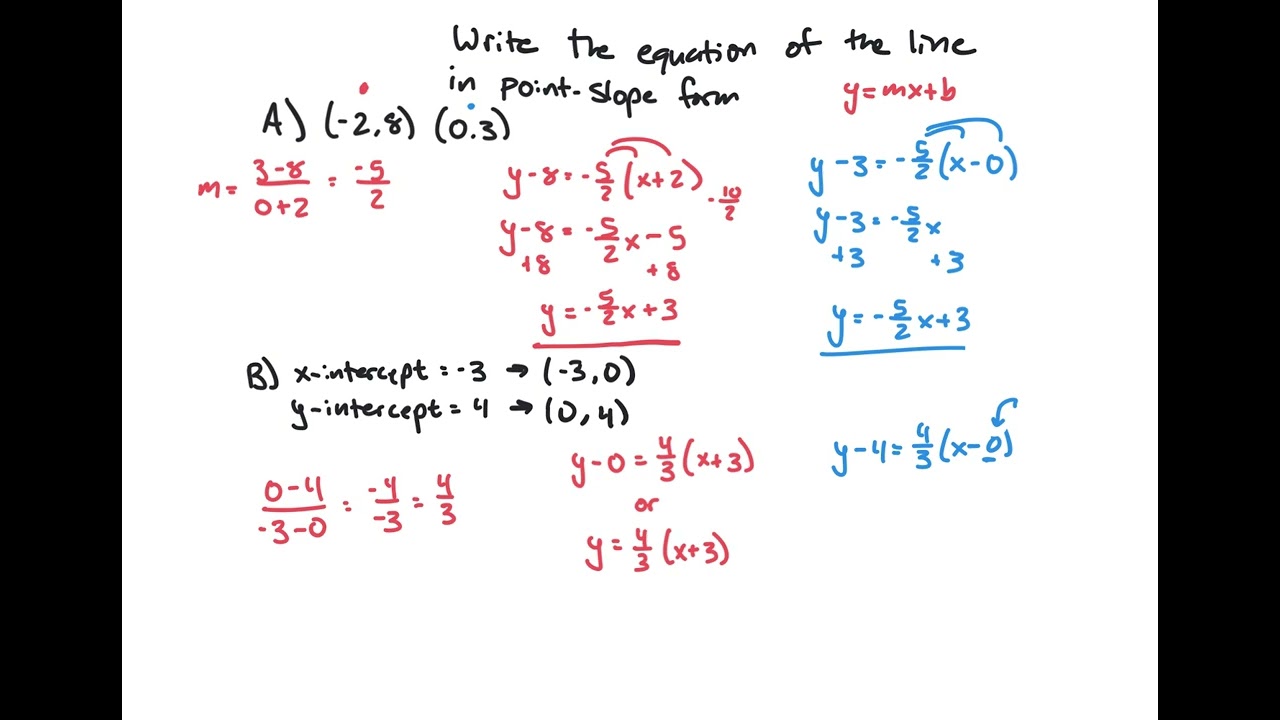 Write the equation of the line
in point-slope form
y=mx+b
A) (-2,8) (0.3)
m= 3-8/0+2 = -5/2
y-8=-5/2(x+2)
-10/2
y-8=-5/2x-5
+8 +8
y=-5/2x+3
y-3=-5/2(x-0)
y-3=-5/2x
+3 +3
y=-5/2x+3
B) x-intercept=-3 → (-3,0)
y-intercept=4 → (0,4)
0-4/-3-0 = -4/-3 = 4/3
y-0=4/3(x+3)
or
y=4/3(x+3)
y-4=4/3(x-0)